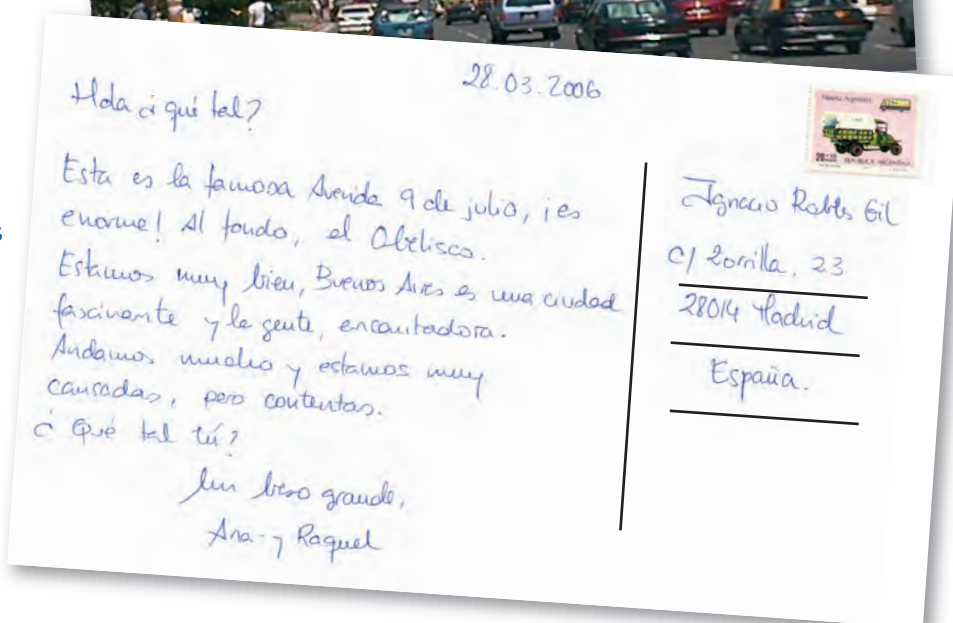 s
28.03.2006
Hola ¿qué tal?
Esta es la famosa Avenida 9 de julio, ¡es
enorme! Al fondo, el Obelisco.
Estamos muy bien, Buenos Aires es una ciudad
fascinante y la gente, encantadora.
Andamos mucho y estamos muy
cansadas, pero contentas.
¿Qué tal tú?
Un beso grande,
Ana y Raquel
Ignacio Robles Gil
C/ Zorrilla, 23
28014 Madrid
España.
REPUBLICA ARGENTINA